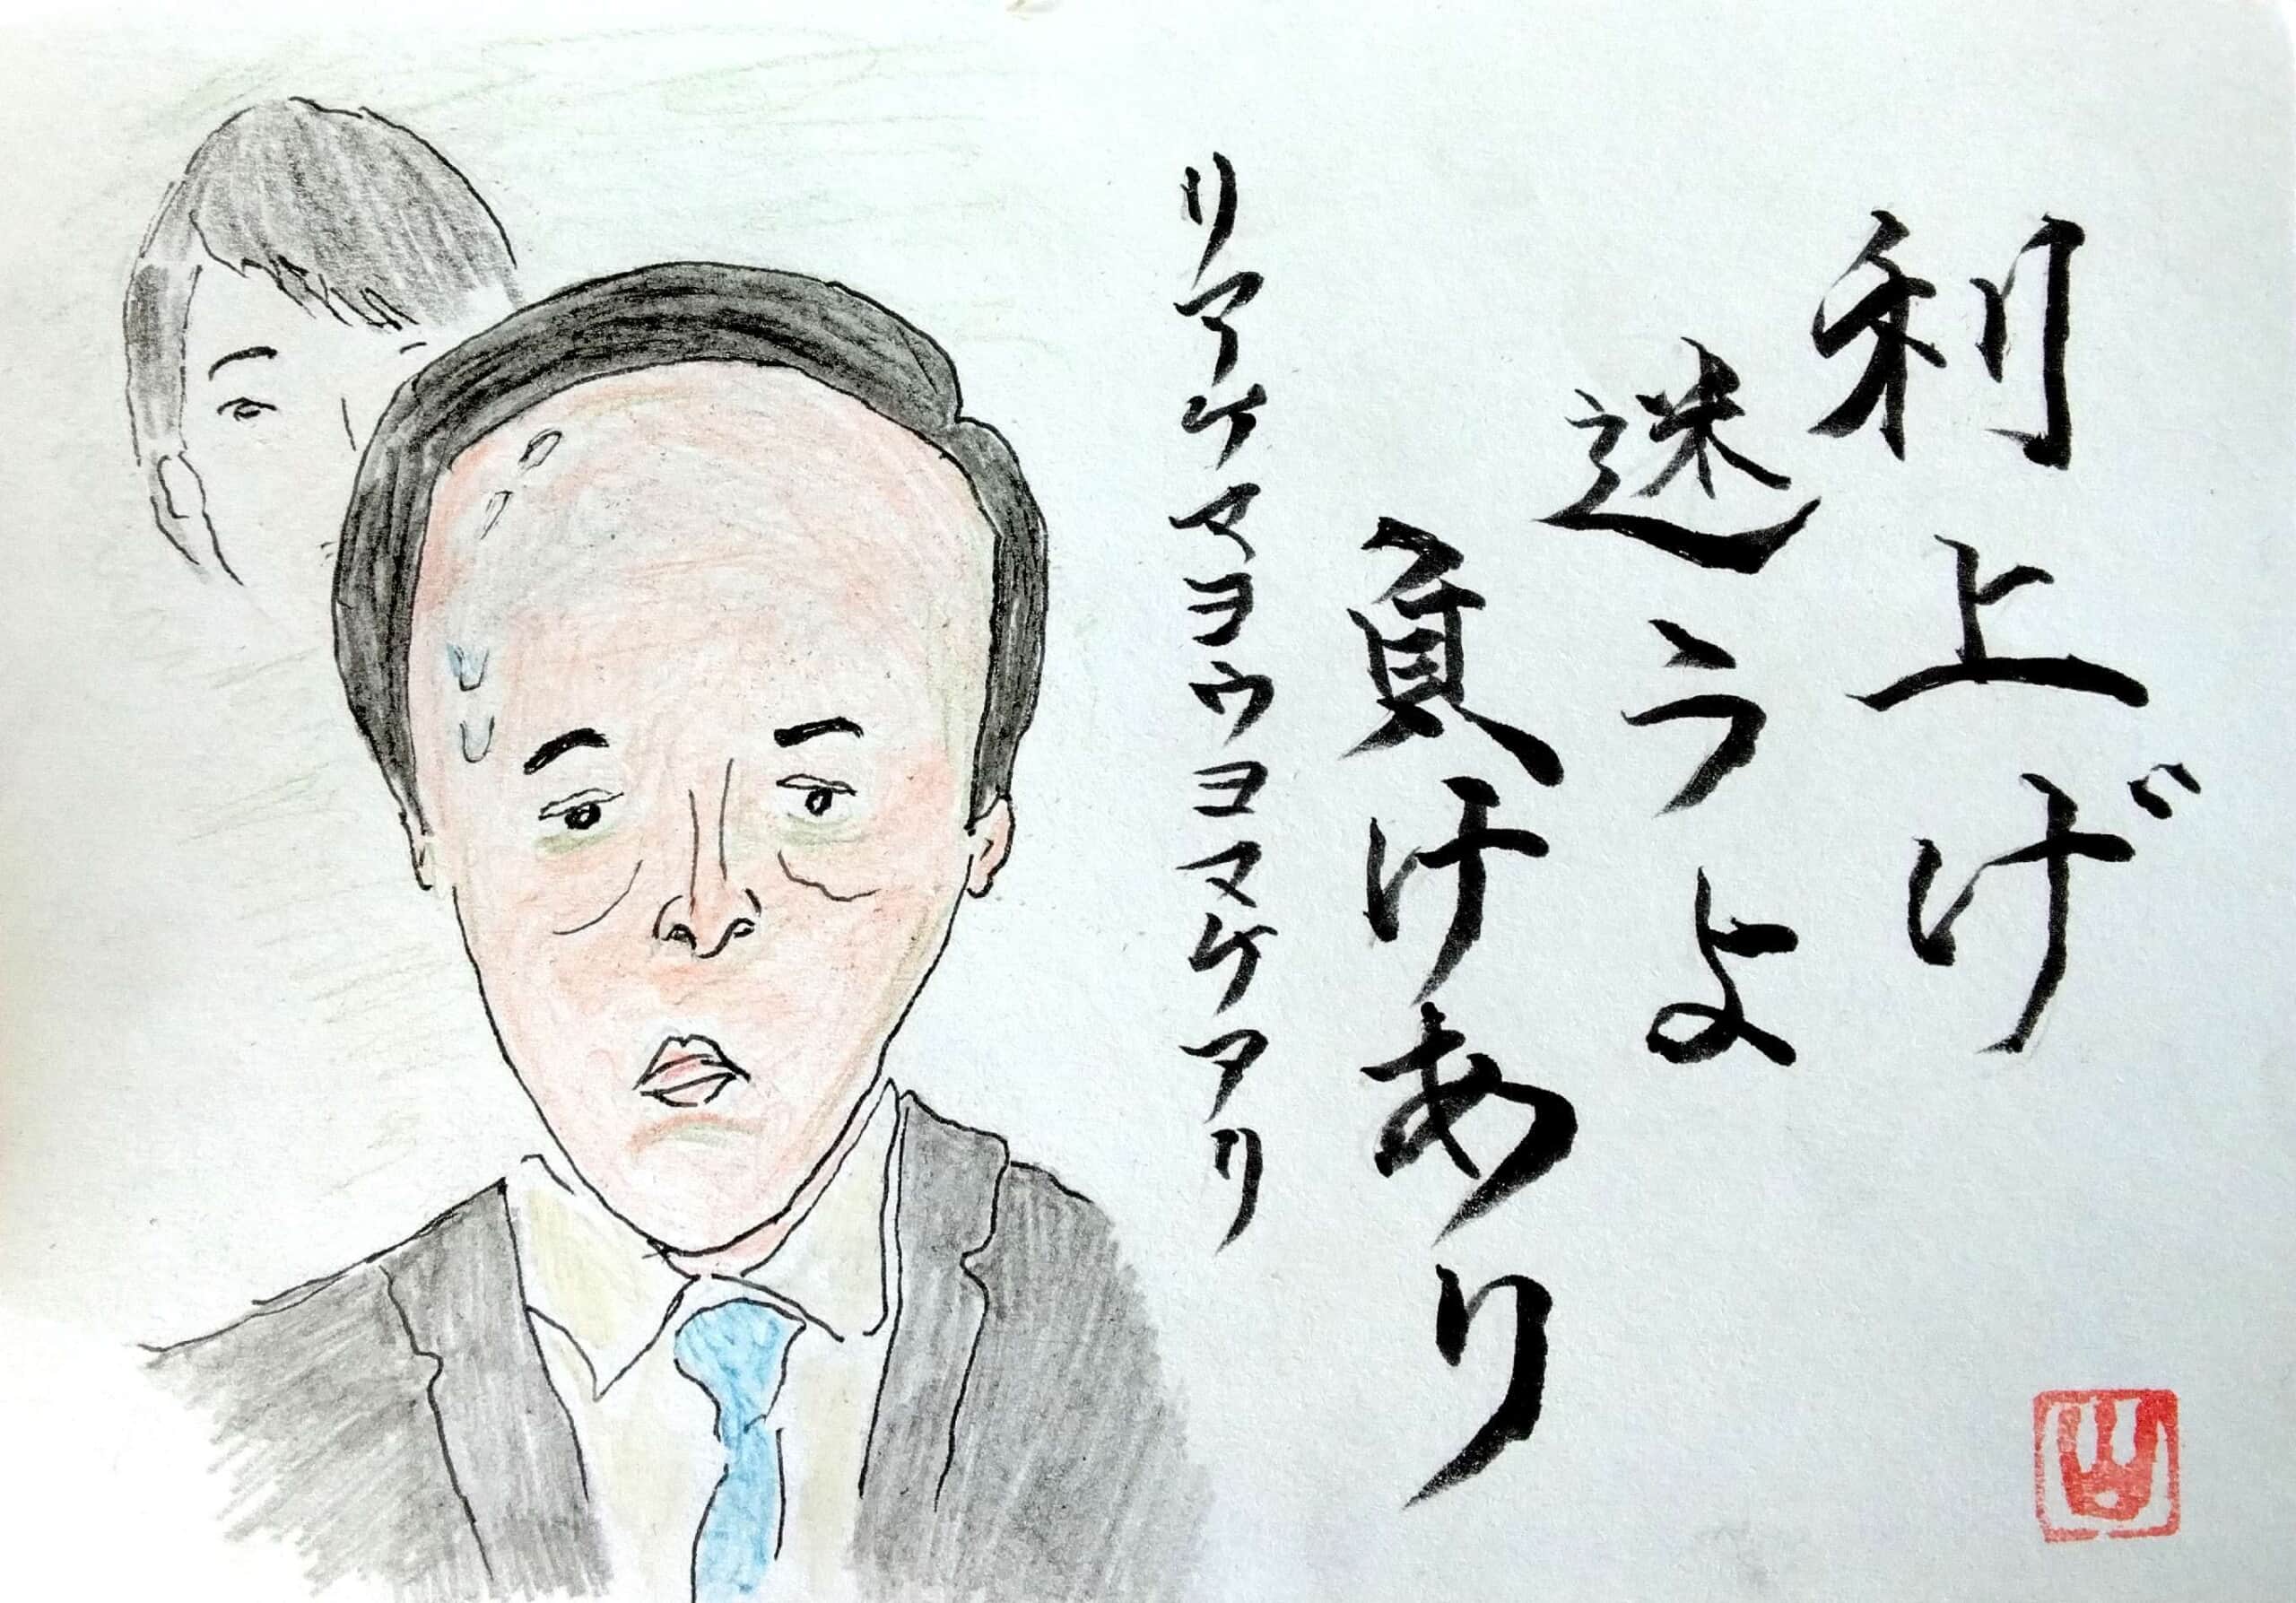 利上げ
迷うよ
負けあり
リアゲマヨウヨマケアリ